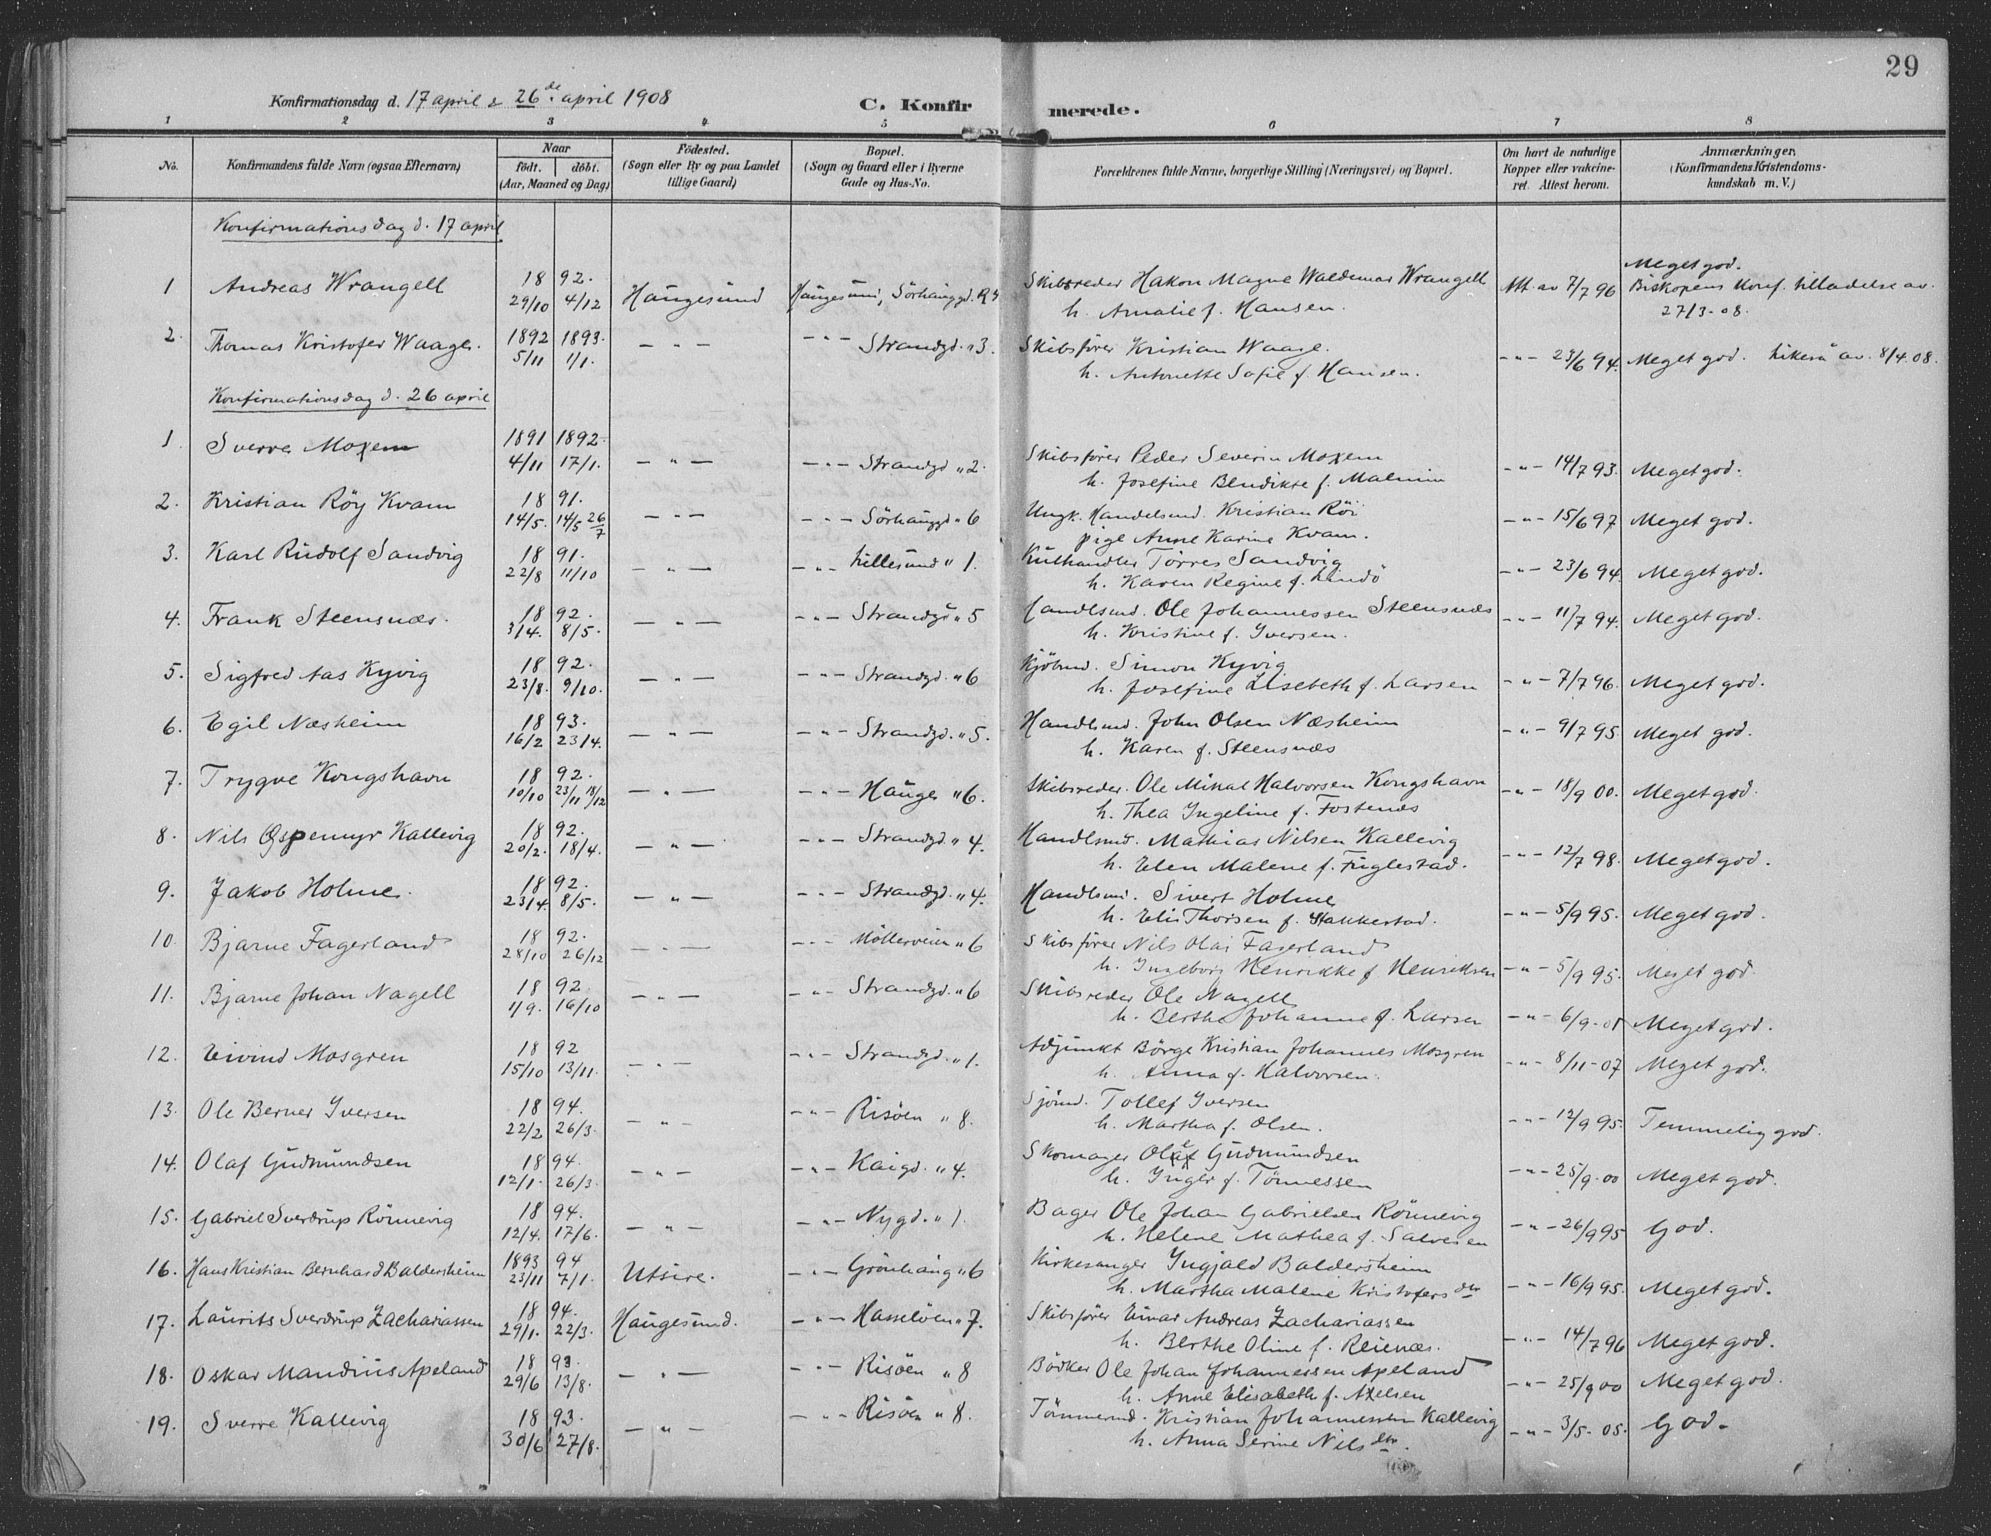 29
Konfirmationsdag d. 17 april & 26de april 1908
C. Konfirmerede.
1 2 3 4 5 6 7 8
No. Konfirmandens fulde Navn (ogsaa Efternavn) Naar født. døbt. (Aar, Maaned og Dag) Fødested. (Sogn eller By og paa Landet tillige Gaard) Bopæl. (Sogn og Gaard eller i Byerne Gade og Hus-No. Forældrenes fulde Navne, borgerlige Stilling (Næringsvei) og Bopæl. Om havt de naturlige Kopper eller vakcineret. Attest herom. Anmærkninger, (Konfirmandens Kristendomskundskab m. V.)
Konfirmationsdag d. 17 april
1 Andreas Wrangell 18 92. 29/10 4/12 Haugesund Haugesund, Sörhauggd. Skibsreder Hakon Magne Waldemar Wrangell Att. av 7/7 96 Meget god.
h. Amalie f. Hansen. Biskopens konf. tilladelse av
27/3-08.
2. Thomas Kristofer Waage. 1892 1893. 5/11 1/1. — " — - " - Strandgd. " 3. Skibsfører Kristian Waage. - " - 23/6 94. Meget god. Likeså av 8/4.08.
h. Antonette Sofie f. Hansen.
Konfirmationsdag d. 26 april
1 Sverre Moxem 1891 1892. 4/11 17/1. — " — - " - Strandgd " 2. Skibsfører Peder Severin Moxem - " - 14/7 93. Meget god.
h. Josefine Bendikte f. Malmin
2. Kristian Röy Kvam 18 91. 14/5. 14/5 26/7 — " — - " - Sörhauggd " 6 Ungk. Handelsmd. Kristian Röi - " - 15/6 97 Meget god.
pige Anne Karine Kvam.
3. Karl Rudolf Sandvig 18 91. 22/8 11/10 — " — - " - Lillesund " 1. Kulhandler Törres Sandvig - " - 23/6 94. Meget god.
h. Karen Regine f. Lindö
4. Frank Steensnæs. 18 92. 3/4. 8/5. — " — - " - Strandgd " 5 Handlsmd. Ole Johannessen Steensnæs - " - 11/7 94. Meget god.
h. Kristine f. Iversen.
5. Sigfred Aas Kyvig 18 92. 23/8. 9/10. — " — - " - Strandgd. " 6 Kjöbmd. Simon Kyvig - " - 7/7 96. Meget god.
h. Josefine Lisebeth f. Larsen
6. Egil Næsheim 18 93. 16/2 23/4. — " — - " - Strandgd. " 5. Handlsmd. John Olsen Næsheim - " - 9/7 95. Meget god.
h. Karen f. Steensnæs
7. Trygve Kongshavn 18 92. 10/10 23/11 18/12 — " — - " - Hauge " 6. Skibsreder. Ole Mikal Halvorsen Kongshavn - " - 18/9 00. Meget god.
h. Thea Ingeline f. Fostenæs
8. Nils Ospemyr Kallevig 18 92. 20/2. 18/4. — " — - " - Strandgd. " 4. Handlsmd. Mathias Nilsen Kallevig - " - 12/7 98. Meget god.
h. Elen Malene f. Fuglestad.
9. Jakob Holme. 18 92. 23/4. 8/5. — " — - " - Strandgd. " 4. Handlsmd. Sivert Holme - " - 5/9 95. Meget god.
h. Elis Thorsen f. Stakkestad.
10. Bjarne Fagerland 18 92. 28/10 26/12 — " — - " - Möllerveien " 6 Skibsfører Nils Olai Fagerland - " - 5/9 95. Meget god.
h. Ingeborg Henrikke f Henriksen
11. Bjarne Johan Nagell 18 92. 1/9. 16/10 — " — - " - Strandgd. " 6 Skibsreder Ole Nagell - " - 6/9-01 Meget god.
h. Berthe Johanne f. Larsen
12. Eivind Mosgren 18 92 15/10 13/11. — " — - " - Strandgd. " 1. Adjunkt Börge Kristian Johannes Mosgren - " - 8/11-07 Meget god.
h. Anna f. Halvorsen.
13. Ole Berner Iversen 18 94. 22/2 26/3. — " — - " - Risöen " 8. Sjömd. Tollef Iversen - " - 12/9 95. Temmelig god.
h. Martha f. Olsen.
14. Olaf Gudmundsen 18 94. 12/1. 26/3. — " — - " - Kaigd. " 4. Skomager Olaf Gudmundsen - " - 25/9-00 Meget god.
h. Inger f. Tönnessen
15. Gabriel Sverdrup Rönnevig 18 94. 12/4. 17/6. — " — - " - Nygd. " 1. Bager Ole Johan Gabrielsen Rönnevig - " - 26/9 95 God.
h. Helene Mathea f. Salvesen
16. Hans Kristian Bernhard Baldersheim 1893 94 23/11 7/1. Utsire. - " - Grönhaug " 6 Kirkesanger Ingjald Baldersheim - " - 16/9 95. Meget god.
h. Martha Malene Kristofersdtr
17. Laurits Sverdrup Zachariassen 18 94. 29/1. 22/3. Haugesund. - " - Hasseløen " 7. Skibsfører Einar Andreas Zachariassen - " - 14/7 96 Meget god.
h. Berthe Oline f. Reienæs.
18. Oskar Mandius Apeland 18 93. 29/6 13/8. — " — - " - Risöen " 8 Bödker Ole Johan Johannessen Apeland - " - 25/9 00 Meget god.
h. Anne Elisabeth f. Axelsen
19. Sverre Kallevig 18 93. 30/6 27/8. — " — - " - Risöen " 8. Tömmermd. Kristian Johannessen Kallevig - " - 3/5-05. God.
h. Anna Serine Nilsdtr.